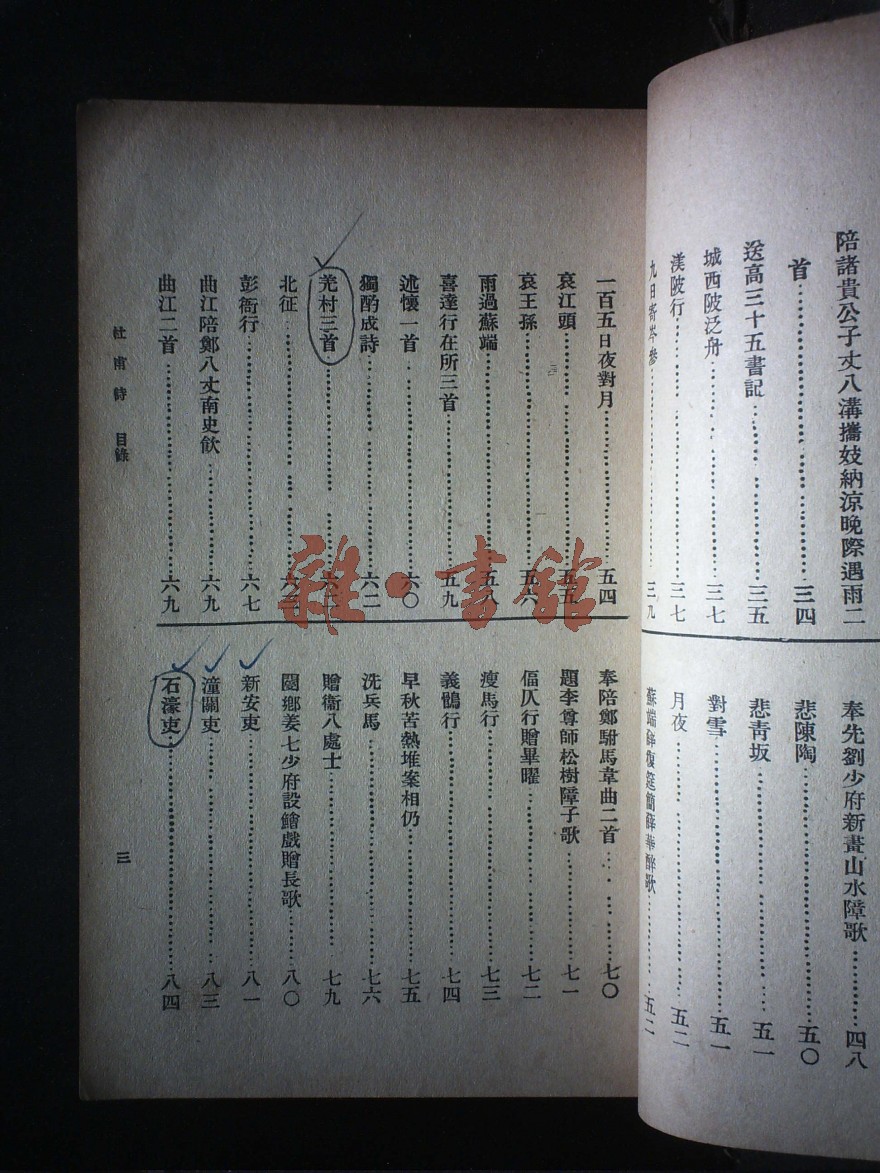 陪諸貴公子丈八溝攜妓納涼晚際遇雨二
首…………三四
送高三十五書記…………三五
城西陂泛舟…………三七
渼陂行…………三七
九日寄岑參…………三九
奉先劉少府新畫山水障歌…………四八
悲陳陶…………五〇
悲靑坂…………五一
對雪…………五一
月夜…………五二
蘇端薛復筵簡薛華醉歌…………五二
一百五日夜對月…………五四
哀江頭…………五五
哀王孫…………五六
雨過蘇端…………五八
喜達行在所三首…………五九
述懷一首…………六〇
獨酌成詩…………六二
羌村三首…………六二
北征…………六三
彭衙行…………六七
曲江陪鄭八丈南史飮…………六九
曲江二首…………六九
奉陪鄭駙馬韋曲二首…………七〇
題李尊師松樹障子歌…………七一
偪仄行贈畢曜…………七二
瘦馬行…………七三
義鶻行…………七四
早秋苦熱堆案相仍…………七五
洗兵馬…………七六
贈衞八處士…………七九
閿鄉姜七少府設鱠戲贈長歌…………八〇
新安吏…………八一
潼關吏…………八三
石濠吏…………八四
杜甫詩 目錄
三
雜·書館